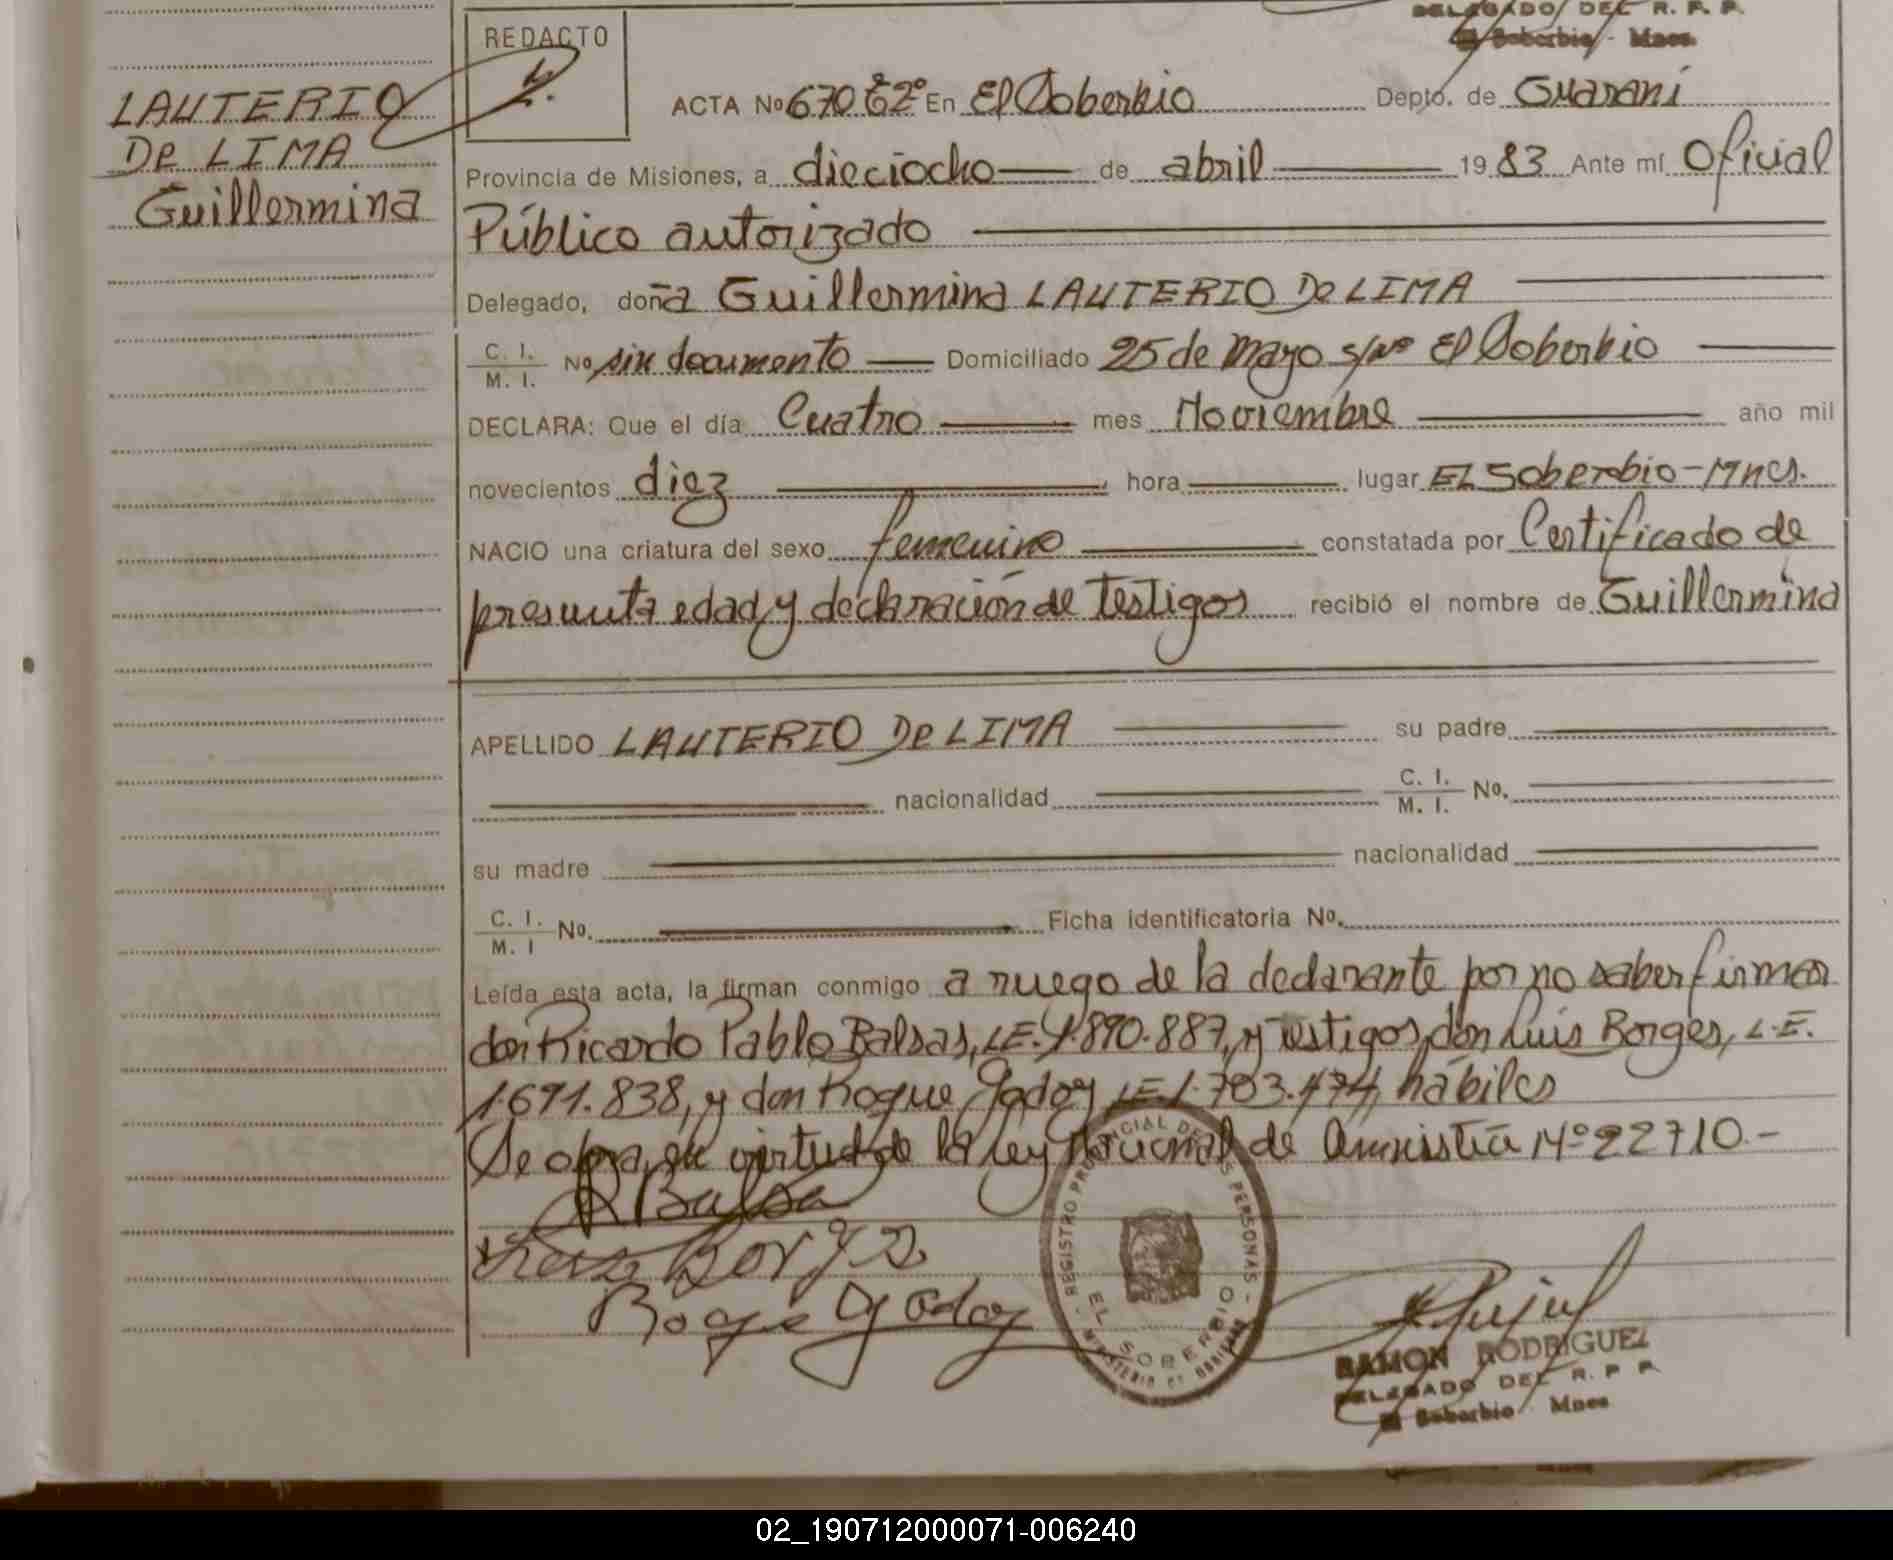 DELEGADO DEL R. P. P.
El Soberbio - Mnes.
REDACTO
LAUTERIO
DE LIMA
Guillermina
ACTA Nº 670 Tº 2º En El Soberbio Depto. de Guaraní
Provincia de Misiones, a dieciocho de abril 1983 Ante mí Oficial
Público autorizado
Delegado, doña Guillermina LAUTERIO De LIMA
C. I. M. I. Nº sin documento Domiciliado 25 de Mayo s/nº El Soberbio
DECLARA: Que el día Cuatro mes Noviembre año mil
novecientos diez hora lugar EL Soberbio-Mnes.
NACIO una criatura del sexo femenino constatada por Certificado de
presunta edad y declaración de testigos recibió el nombre de Guillermina
APELLIDO LAUTERIO De LIMA su padre
nacionalidad C. I. M. I. Nº.
su madre nacionalidad
C. I. M. I Nº. Ficha identificatoria Nº.
Leída esta acta, la firman conmigo a ruego de la declarante por no saber firmar
don Ricardo Pablo Balsas, L.E. 1.890.887, y testigos don Luis Borges, L.E.
1.691.838, y don Roque Godoy LE 1.703.474, hábiles
Se obra, en virtud de la ley Nacional de Amnistía Nº 22710.-
R Balsa
Luis Borges
Roque Godoy
REGISTRO PROVINCIAL DE LAS PERSONAS
EL SOBERBIO
MINISTERIO DE GOBIERNO
RAMON RODRIGUEZ
DELEGADO DEL R. P. P.
El Soberbio - Mnes
02_190712000071-006240